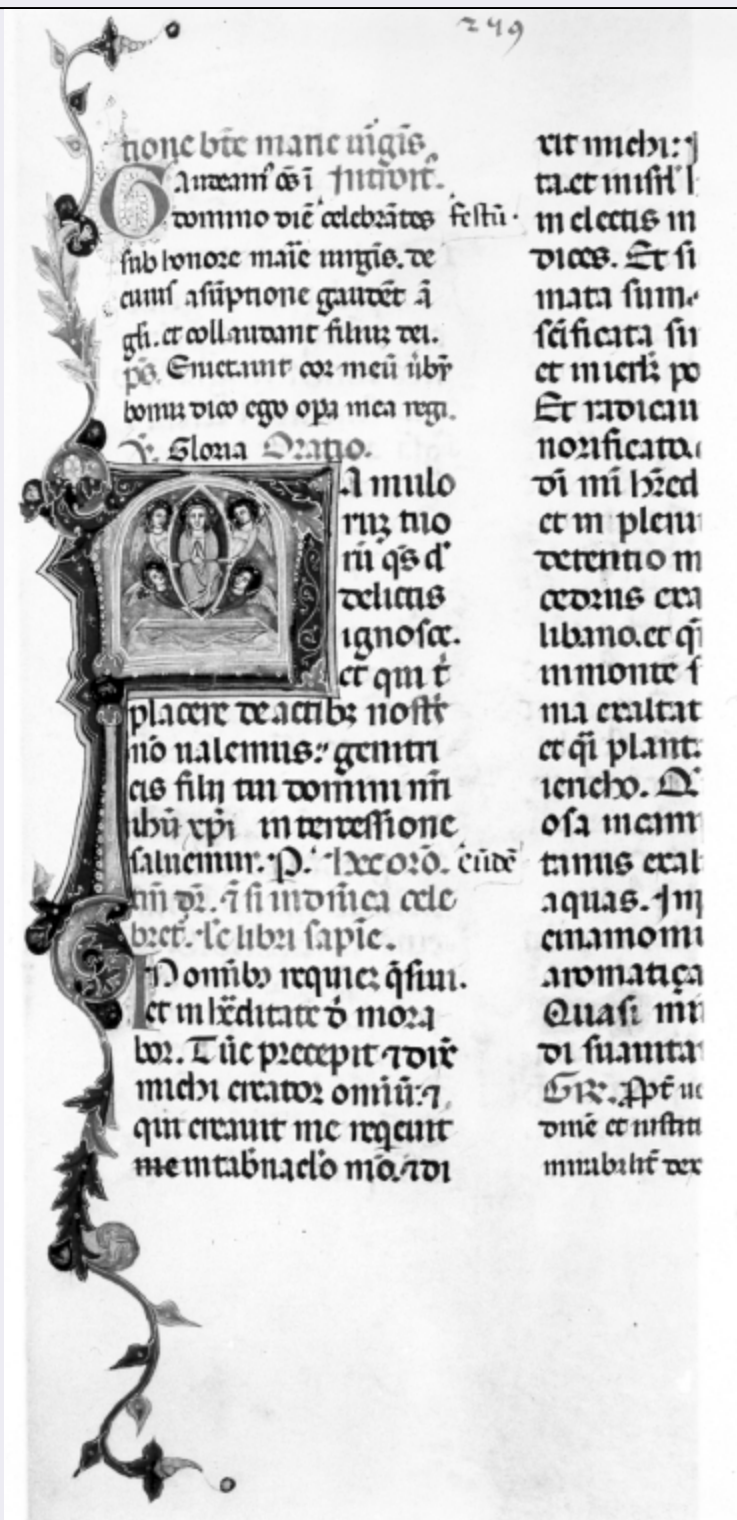 249
tione bte marie uirgis.
Gaudeam' oēs ī Introit'.
domino diē celebrātes festū.
sub honore marie uirgis. de
cuius assūptione gaudēt ā
gli. et collaudant filium dei.
ps. Eructauit cor meū ūbū
bonum dico ego opa mea regi.
V. Gloria Oratio.
Famulo
rum tuo
rū qs d'
delictis
ignosce.
et qui t
placere de actibz nostr
nō ualemus: genitri
cis filij tui domini nr̄i
ihū xp̄i intercessione
saluemur. P. Hec orō. eūdē
nr̄i dr̄. ⁊ si in dn̄ica cele
bret'. Lc libri sapīe.
In omībz requiez q̄siui.
et in hr̄editate d mora
bor. Tūc precepit ⁊ dix̄
michi creator omīū: ⁊
qui creauit me reqeuit
me in tab̄naclo mō. ⁊ di
xit michi: I
ta. et in isrl' I
in electis m
dices. Et si
mata sum.
sc̄ificata su
et in ierlm po
Et radicaui
norificato.
dī mī hr̄ed
et in pleni
detentio m
cedrus exa
libano. et q̄i
in monte s
ma exaltat
et q̄i planta
iericho. Q
osa in cam
tanus exal
aquas. In
cinamomu
aromatiça
Quasi mir
di suauita
GR. Ppt ue
dinē et iustiti
mirabilit' dex